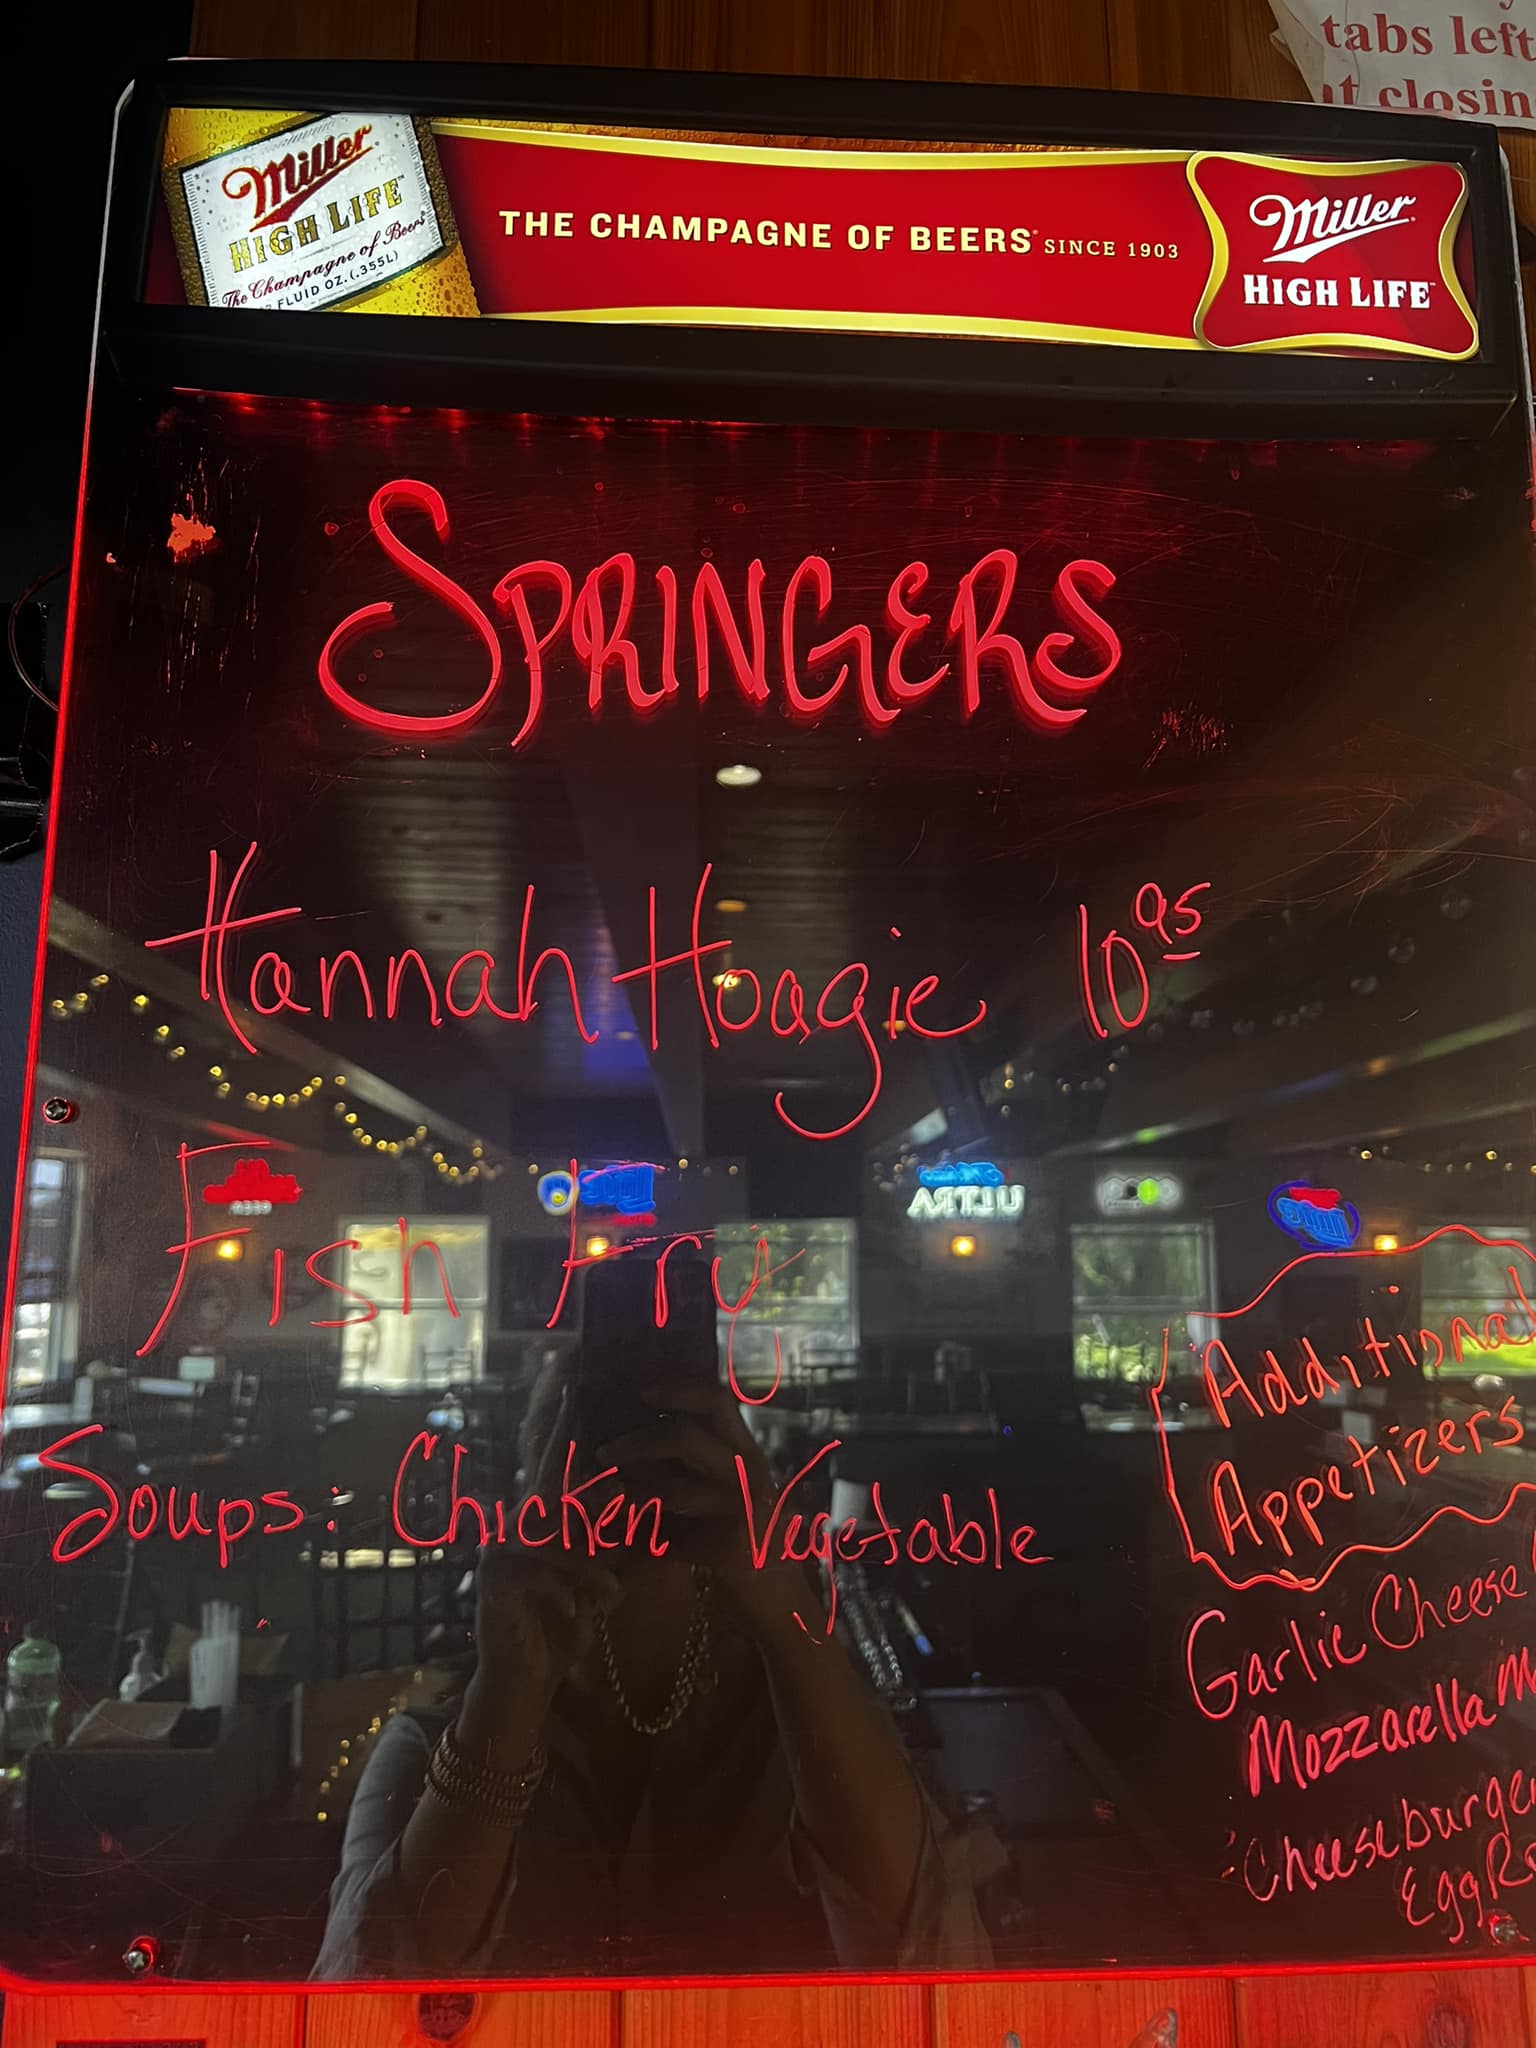 tabs left
at closin
Miller
HIGH LIFE™
The Champagne of Beers
FLUID OZ. (.355L)
THE CHAMPAGNE OF BEERS® SINCE 1903
Miller
HIGH LIFE
SPRINGERS
Hannah Hoagie 10 95
Fish Fry
Soups: Chicken Vegetable
Additional
Appetizers
Garlic Cheese
Mozzarella
Cheeseburger
Egg
ULTRA